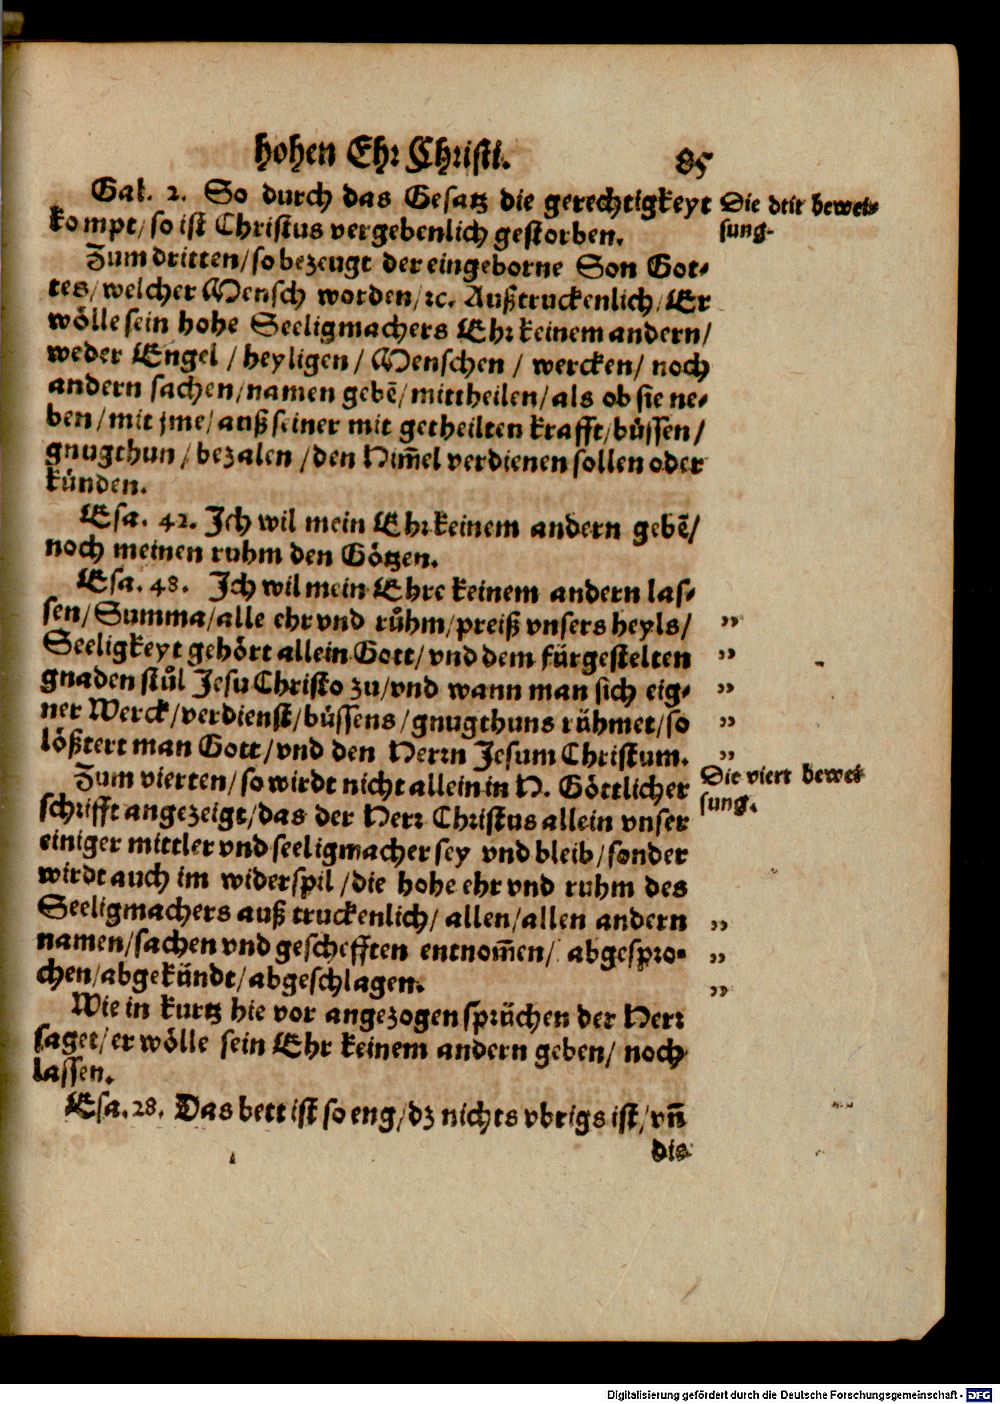 hohen Ehr Christi. 85
Gal. 2. So durch das Gesatz die gerechtigkeyt
kompt/ so ist Christus vergebenlich gestorben.
Die drit bewei-
sung.
Zum dritten/ so bezeugt der eingeborne Son Got-
tes/ welcher Mensch worden/ ꝛc. Außtruckenlich/ Er
wölle sein hohe Seeligmachers Ehr keinem andern/
weder Engel / heyligen / Menschen / wercken / noch
andern sachen/ namen gebē/ mittheilen/ als ob sie ne-
ben/ mit jme/ auß seiner mit getheilten krafft/ büssen/
gnugthun / bezalen / den Him̄el verdienen sollen oder
künden.
Esa. 42. Ich wil mein Ehr keinem andern gebē/
noch meinen ruhm den Götzen.
Esa. 48. Ich wil mein Ehre keinem andern las-
sen/ Summa/ alle ehr vnd růhm/ preiß vnsers heyls/ „
Seeligkeyt gehört allein Gott/ vnd dem fürgestelten „
gnaden stůl Jesu Christo zu/ vnd wann man sich eig- „
ner Werck/ verdienst/ büssens/ gnugthuns rühmet/ so „
lößtert man Gott/ vnd den Herrn Jesum Christum. „
Zum vierten/ so wirdt nicht allein in H. Göttlicher
schrifft angezeigt/ das der Herr Christus allein vnser
Die viert bewei-
sung.
einiger mittler vnd seeligmacher sey vnd bleib/ sonder
wirdt auch im widerspil / die hohe ehr vnd ruhm des
Seeligmachers auß truckenlich/ allen/ allen andern „
namen/ sachen vnd geschefften entnom̄en/ abgespro- „
chen/ abgekündt/ abgeschlagen. „
Wie in kurtz hie vor angezogen sprüchen der Herr
saget/ er wölle sein Ehr keinem andern geben/ noch
lassen.
Esa. 28. Das bett ist so eng/ dz nichts vbrigs ist/ vn̄
die
Digitalisierung gefördert durch die Deutsche Forschungsgemeinschaft - DFG